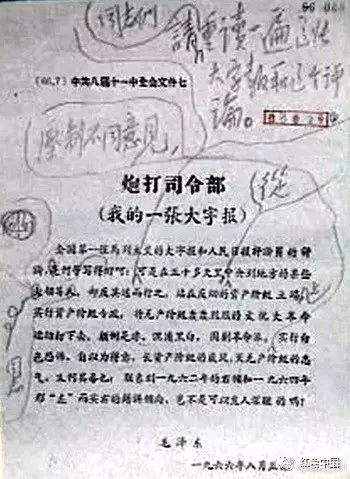 同志们
請重读一遍这张
大字報和这个评
論。
(66.7) 中共八届十一中全会文件七
壓制不同意見,
炮打司令部
(我的一张大字报)
從
全国第一张马列主义的大字报和人民日报评论员的评
论,
写得何等好呵!
可是在五十多天里,
从中央到地方的某些
领导人,却反其道而行之,站在反动的资产阶级立场
实行资产阶级专政,将无产阶级轰轰烈烈的文化大革命
运动打下去,颠倒是非,混淆黑白,围剿革命派,
实行白
色恐怖,自以为得意,长资产阶级的威风,灭无产阶级的志
气,又何其毒也!联系到一九六二年的右倾和一九六四年
形“左”而实右的错误倾向,岂不是可以发人深醒的吗?
毛泽东
一九六六年八月五
红歌中国